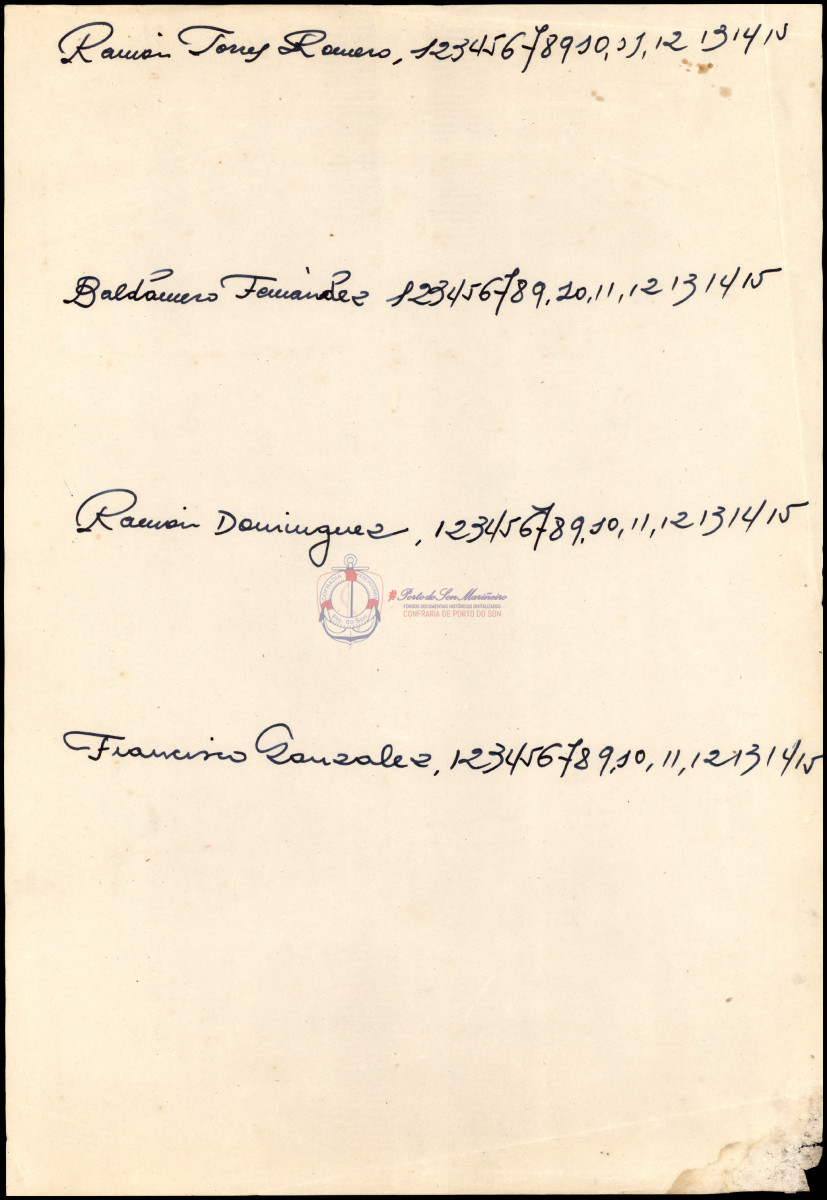 Ramón Torres Romero, 123456789 10, 11, 12 13 14 15
Baldomero Fernández 123456789, 10, 11, 12 13 14 15
Ramón Dominguez, 123456789, 10, 11, 12 13 14 15
COFRADIA
Pto. do Son
#Porto do Son Mariñeiro
FONDOS DOCUMENTAIS HISTÓRICOS DIXITALIZADOS
CONFRARÍA DE PORTO DO SON
Francisco Gonzalez, 123456789, 10, 11, 12 13 14 15